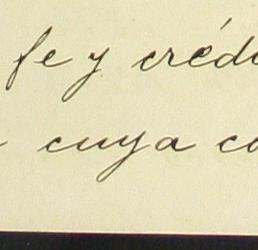 fe y créd
cuya co